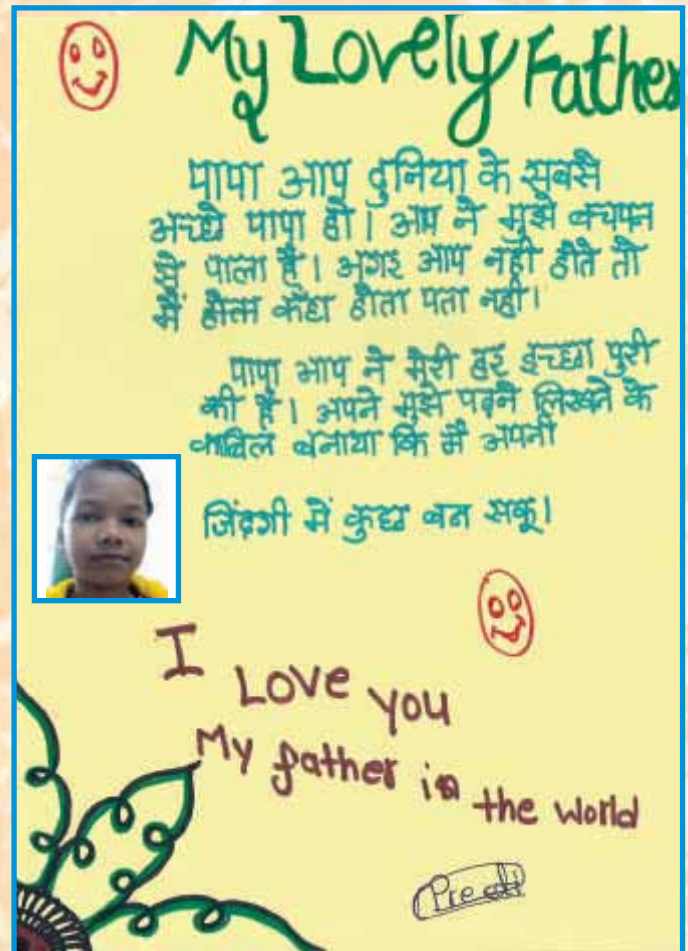 My Lovely Father
पापा आप दुनिया के सबसे
अच्छे पापा हो। आप ने मुझे बचपन
से पाला है। अगर आप नही होते तो
में होता कँहा होता पता नही।
पापा आप ने मेरी हर इच्छा पुरी
की है। अपने मुझे पढ़ने लिखने के
काबिल बनाया कि मै अपनी
जिंदगी में कुछ बन सकू।
I Love you
My father in the world